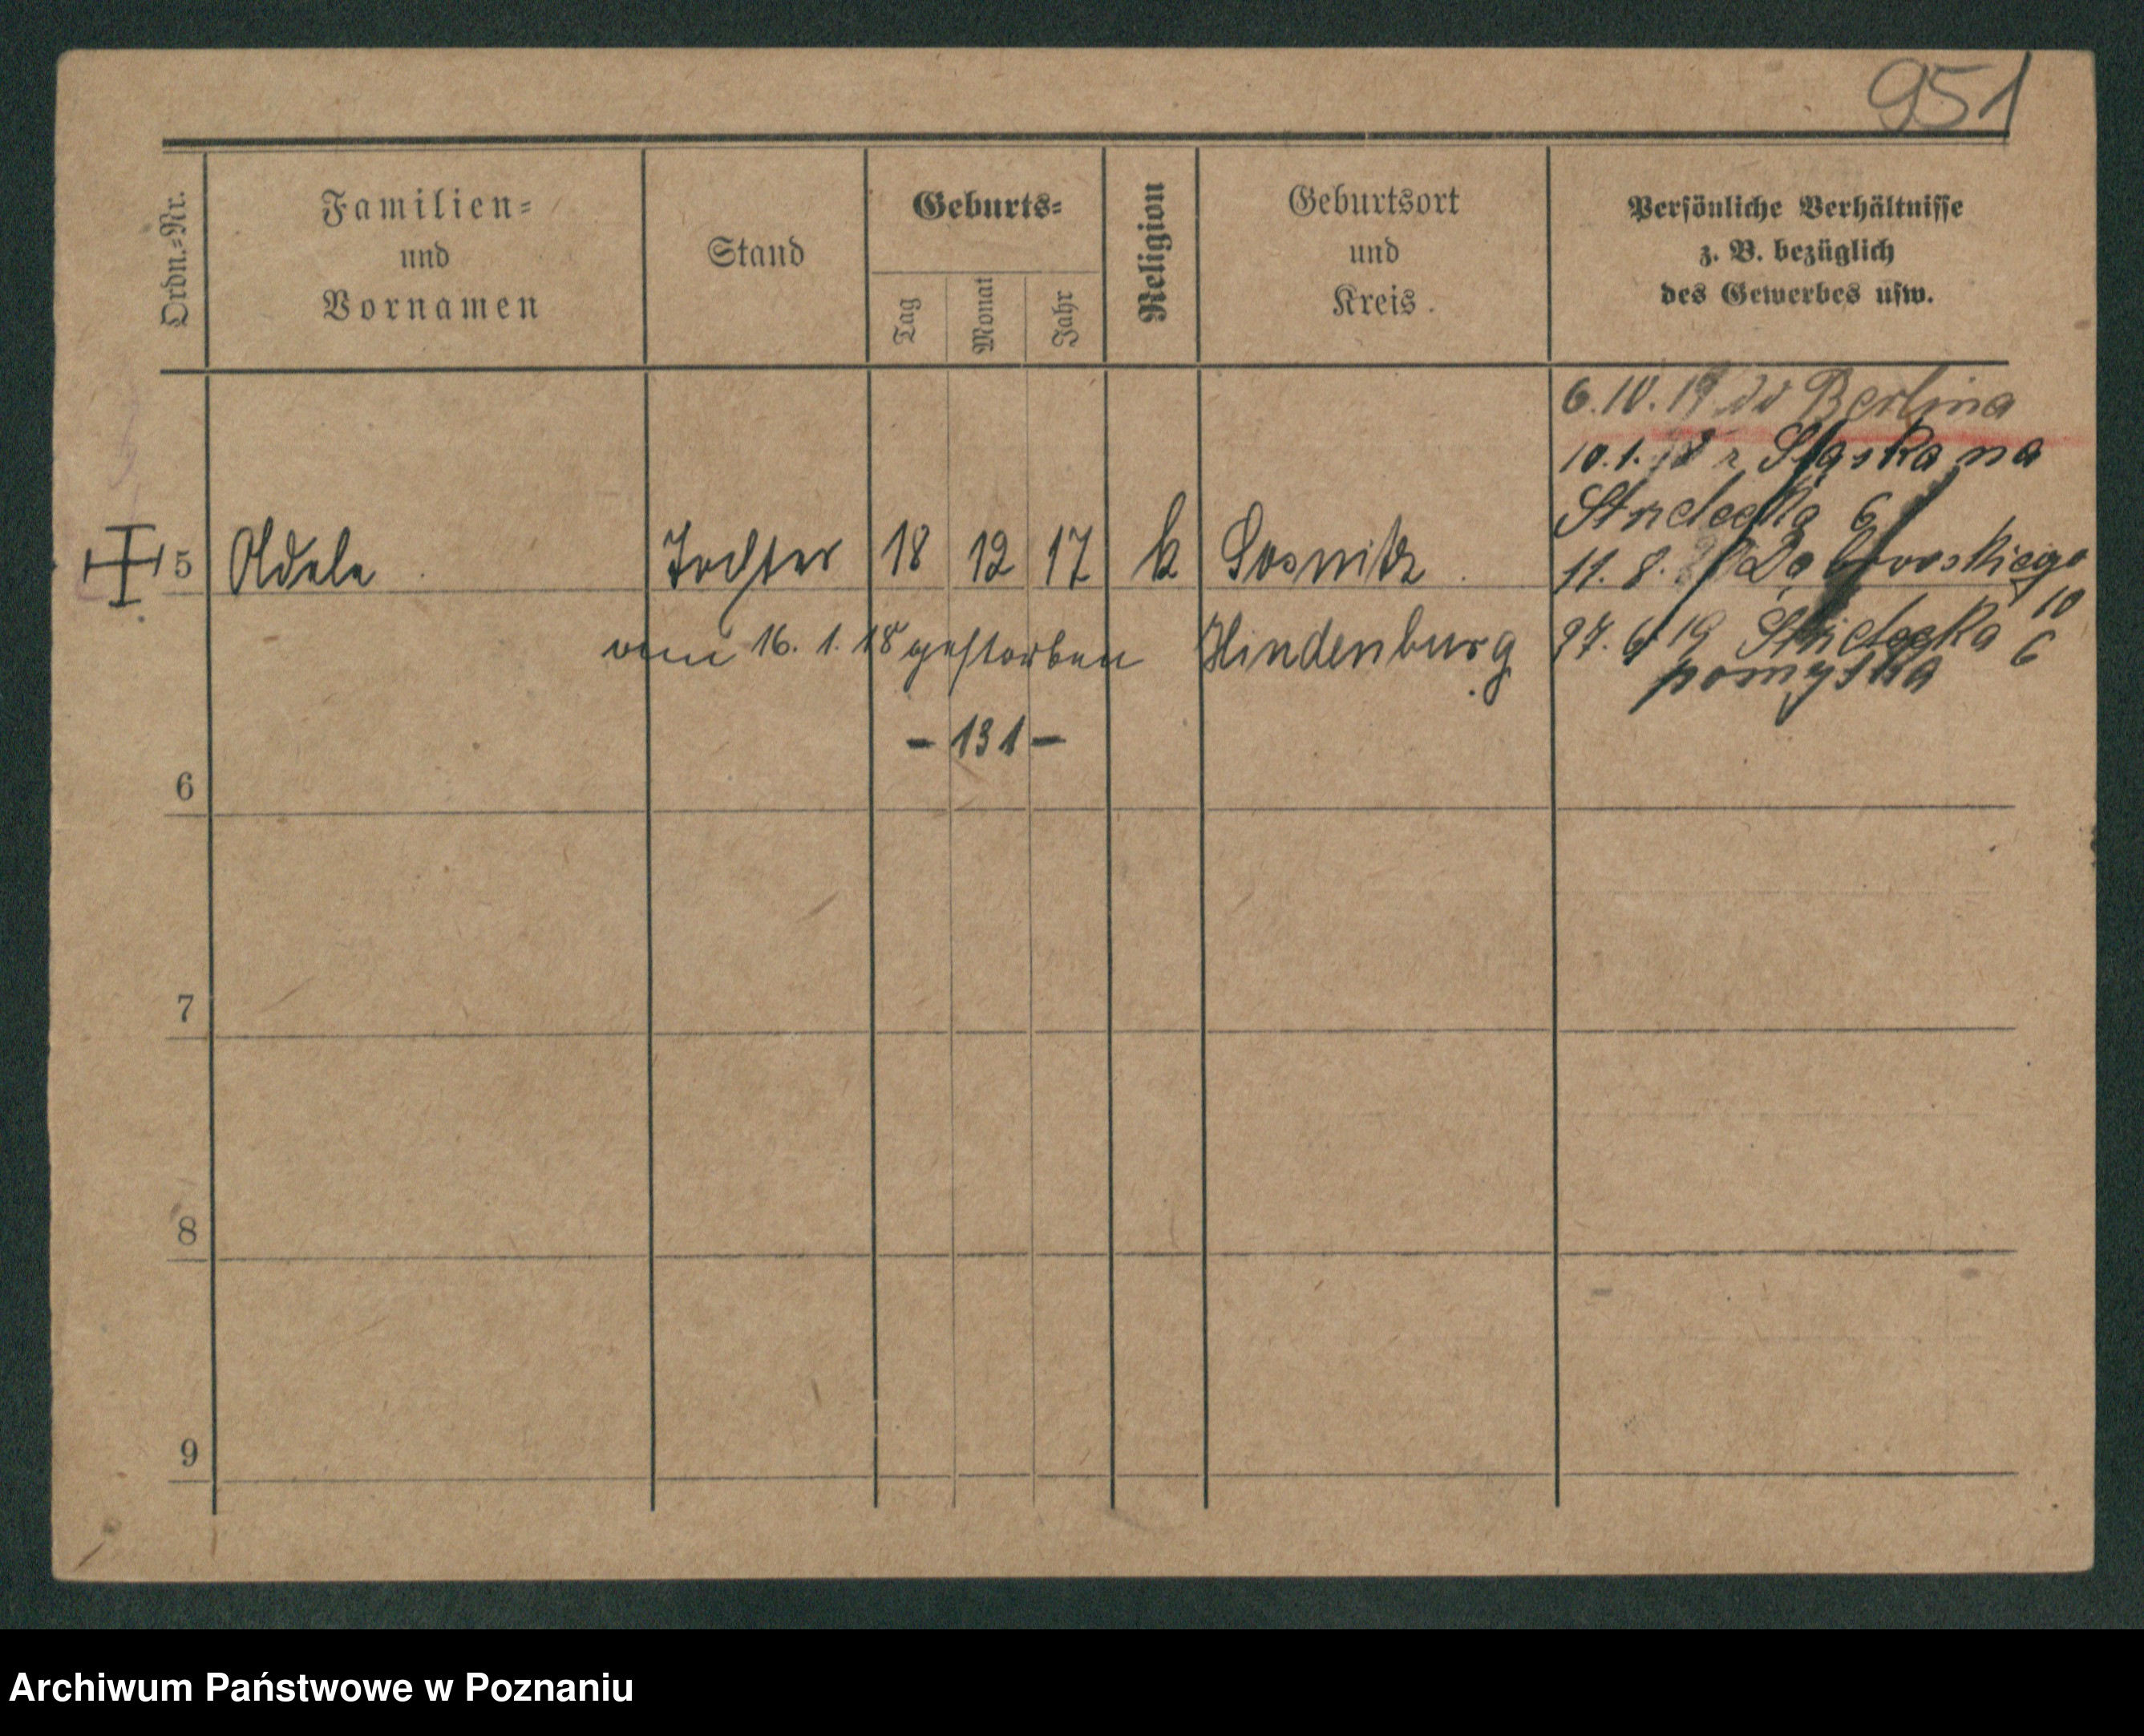 951
Ordn.-Nr.
Familien-
und
Vornamen
Stand
Geburts-
Tag
Monat
Jahr
Religion
Geburtsort
und
Kreis.
Persönliche Verhältnisse
z. B. bezüglich
des Gewerbes usw.
6.10.19 do Berlina
10.1. z Śląska na
Strzelecka 6
5 Adele Tochter 18 12 17 k Sosnitz
11. 8. Dąbrowskiego
10
vom 16. 1. 18 gestorben Hindenburg
27. 6 19 Strzelecka 6
pomyłka
- 131 -
6
7
8
9
Archiwum Państwowe w Poznaniu